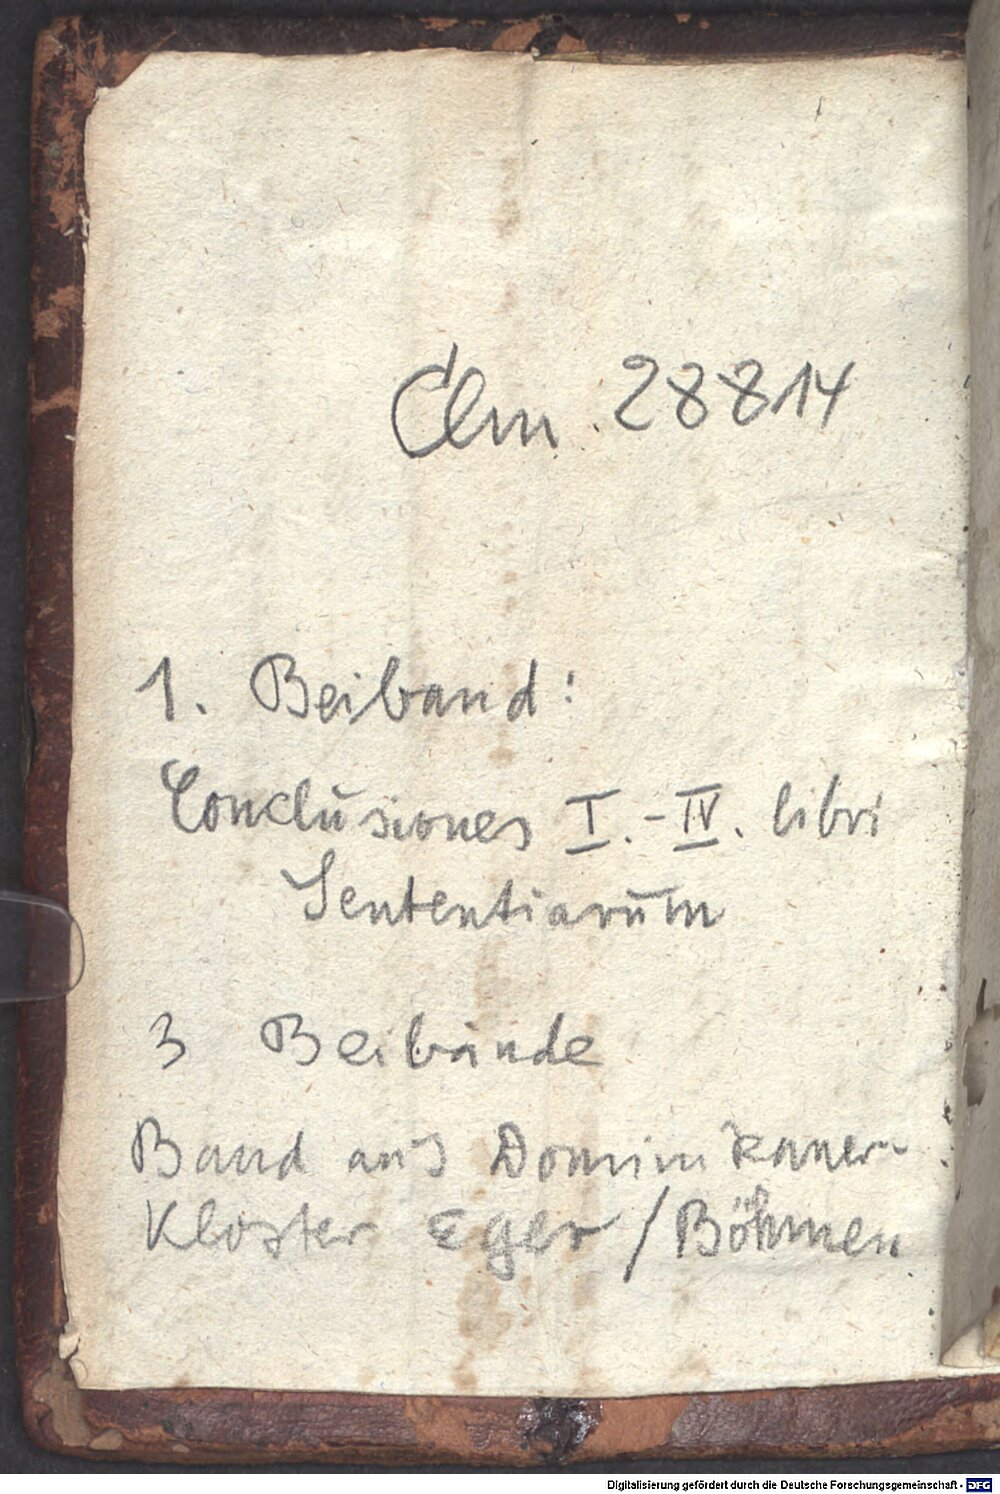 Clm. 28814
1. Beiband:
Conclusiones I.-IV. libri
Sententiarum
3 Beibände
Band aus Dominikaner-
Kloster Eger / Böhmen
Digitalisierung gefördert durch die Deutsche Forschungsgemeinschaft - DFG